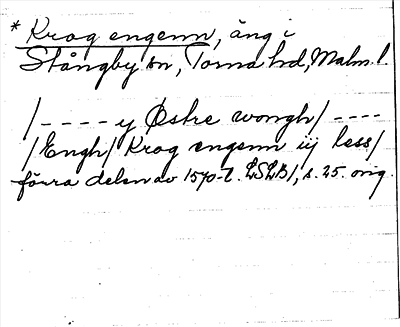 * Krog engenn, äng i
Stångby sn, Torna hd, Malm. l.
/---- y Østre wongh/ ----
/Engh/ Krog engenn iij less/
förra delen av 1570-t. LSLB/, s. 25. orig.